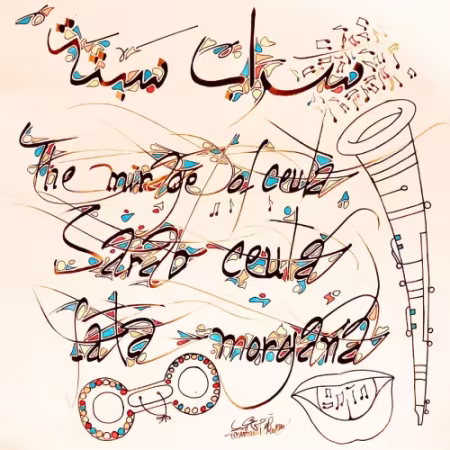 سراب سبتة
The mirage of ceuta
Sarab ceuta
fata-morgana